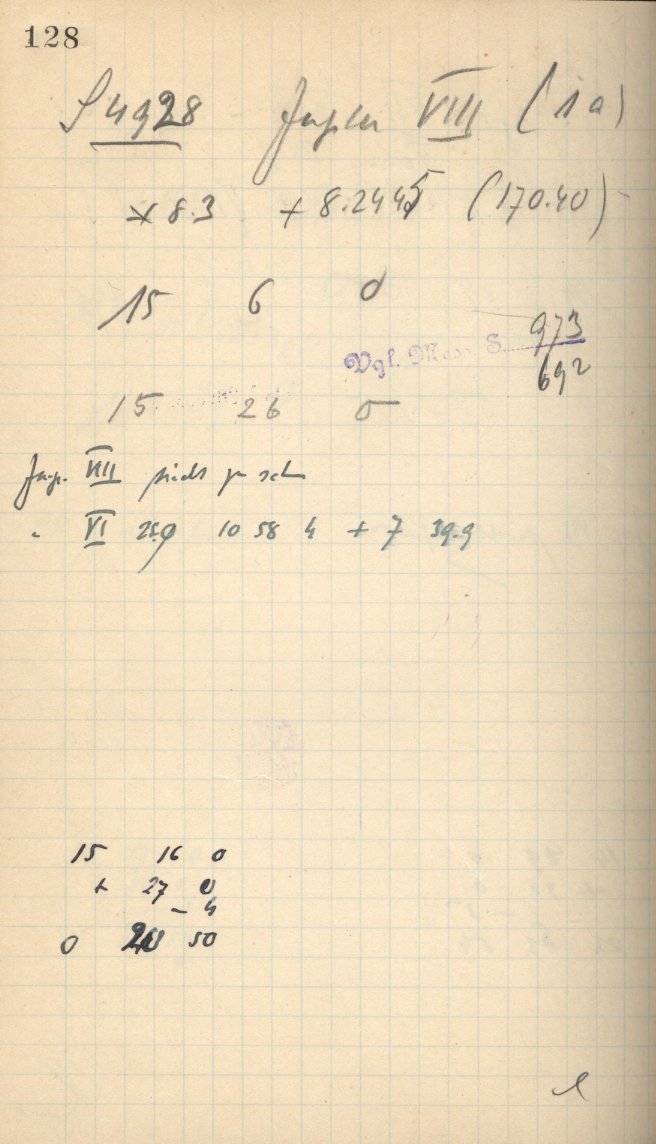 128
S 4928 Jupiter VIII (1a)
× 8.3 + 8.2445 (170.40)
15 6 0
973
Vgl. S. 692
15 26 0
Jup. VIII nicht zu sehen
" VI 25.0 10 58 4 + 7 39.9
15 16 0
+ 27 0
- 4
0 50